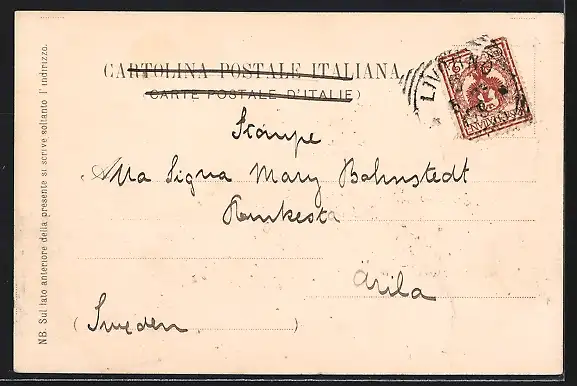 CARTOLINA POSTALE ITALIANA
(CARTE POSTALE D'ITALIE)
LIVORNO
Stampe
Alla Signa Mary Bohnstedt
Arila
(Sweden)
NB. Sul lato anteriore della presente si scrive soltanto l'indirizzo.